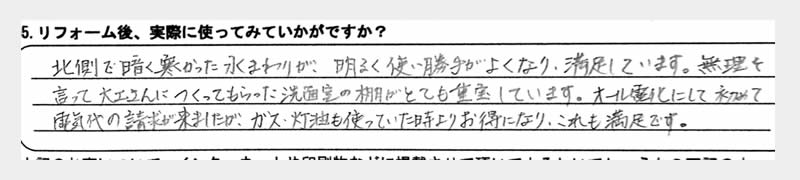 5. リフォーム後、実際に使ってみていかがですか？
北側で暗く寒かった水まわりが、明るく使い勝手がよくなり、満足しています。無理を
言って大工さんにつくってもらった洗面室の棚がとても重宝しています。オール電化にして初めて
電気代の請求が来ましたが、ガス・灯油も使っていた時よりお得になり、これも満足です。